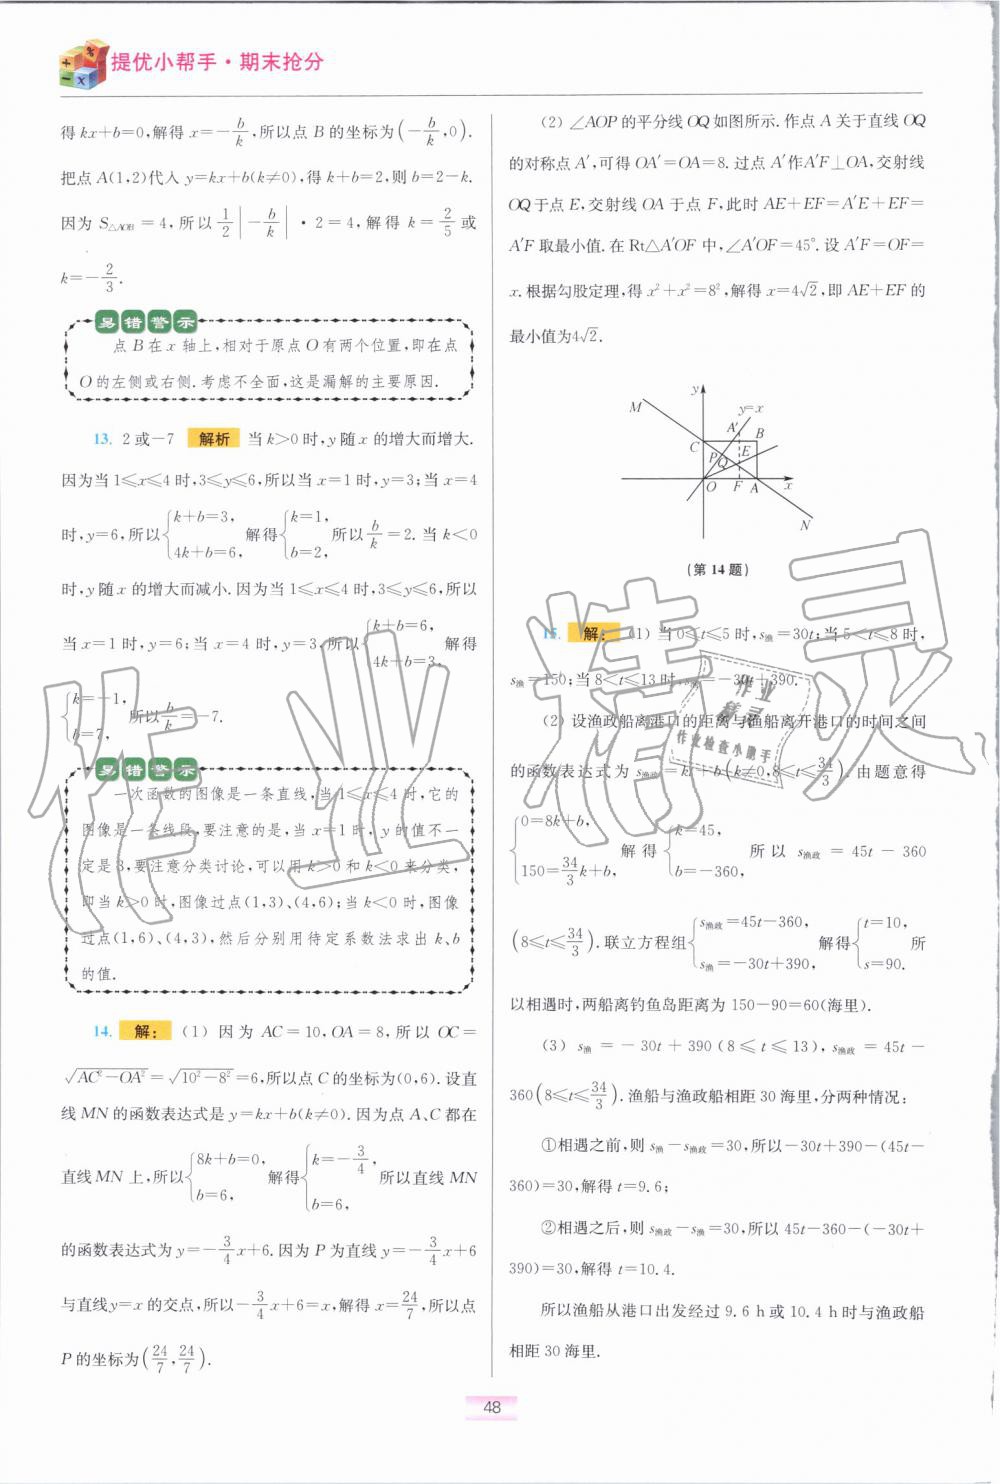 提优小帮手·期末抢分
得 kx+b=0,解得 x=-b/k,所以点 B 的坐标为(-b/k,0).
把点 A(1,2)代入 y=kx+b(k≠0),得 k+b=2,则 b=2-k.
因为 S△AOB=4,所以 1/2|-b/k|·2=4,解得 k=2/5 或
k=-2/3.
易错警示
点 B 在 x 轴上,相对于原点 O 有两个位置,即在点
O 的左侧或右侧.考虑不全面,这是漏解的主要原因.
13. 2或-7 解析 当 k>0 时,y 随 x 的增大而增大.
因为当 1≤x≤4 时,3≤y≤6,所以当 x=1 时,y=3;当 x=4
时,y=6,所以{k+b=3, 4k+b=6, 解得{k=1, b=2, 所以 b/k=2.当 k<0
时,y 随 x 的增大而减小.因为当 1≤x≤4 时,3≤y≤6,所以
当 x=1 时,y=6;当 x=4 时,y=3,所以{k+b=6, 4k+b=3, 解得
{k=-1, b=7, 所以 b/k=-7.
易错警示
一次函数的图像是一条直线,当 1≤x≤4 时,它的
图像是一条线段,要注意的是,当 x=1 时,y 的值不一
定是 3,要注意分类讨论,可以用 k>0 和 k<0 来分类,
即当 k>0 时,图像过点(1,3)、(4,6);当 k<0 时,图像
过点(1,6)、(4,3),然后分别用待定系数法求出 k、b
的值.
14. 解: (1) 因为 AC=10,OA=8,所以 OC=
√(AC²-OA²)=√(10²-8²)=6,所以点 C 的坐标为(0,6).设直
线 MN 的函数表达式是 y=kx+b(k≠0).因为点 A、C 都在
直线 MN 上,所以{8k+b=0, b=6, 解得{k=-3/4, b=6, 所以直线 MN
的函数表达式为 y=-3/4x+6.因为 P 为直线 y=-3/4x+6
与直线y=x 的交点,所以-3/4x+6=x,解得 x=24/7,所以点
P 的坐标为(24/7,24/7).
(2) ∠AOP 的平分线 OQ 如图所示.作点 A 关于直线 OQ
的对称点 A′,可得 OA′=OA=8.过点 A′作A′F⊥OA,交射线
OQ 于点 E,交射线 OA 于点 F,此时 AE+EF=A′E+EF=
A′F 取最小值.在 Rt△A′OF 中,∠A′OF=45°.设 A′F=OF=
x.根据勾股定理,得 x²+x²=8²,解得 x=4√2,即 AE+EF 的
最小值为4√2.
y
M
y=x
A′
B
C
P
Q
E
O
F
A
x
N
(第14题)
15. 解: (1) 当 0≤t≤5 时,s渔=30t;当 5<t≤8 时,
s渔=150;当 8<t≤13 时,s渔=-30t+390.
(2) 设渔政船离港口的距离与渔船离开港口的时间之间
的函数表达式为 s渔政=kt+b(k≠0,8≤t≤34/3).由题意得
{0=8k+b, 150=34/3k+b, 解得{k=45, b=-360, 所以 s渔政=45t-360
(8≤t≤34/3).联立方程组{s渔政=45t-360, s渔=-30t+390, 解得{t=10, s=90. 所
以相遇时,两船离钓鱼岛距离为 150-90=60(海里).
(3) s渔=-30t+390(8≤t≤13),s渔政=45t-
360(8≤t≤34/3).渔船与渔政船相距 30 海里,分两种情况:
①相遇之前,则 s渔-s渔政=30,所以-30t+390-(45t-
360)=30,解得 t=9.6;
②相遇之后,则 s渔政-s渔=30,所以 45t-360-(-30t+
390)=30,解得 t=10.4.
所以渔船从港口出发经过 9.6 h 或 10.4 h 时与渔政船
相距 30 海里.
作业精灵
作业
精灵
作业检查小助手
48